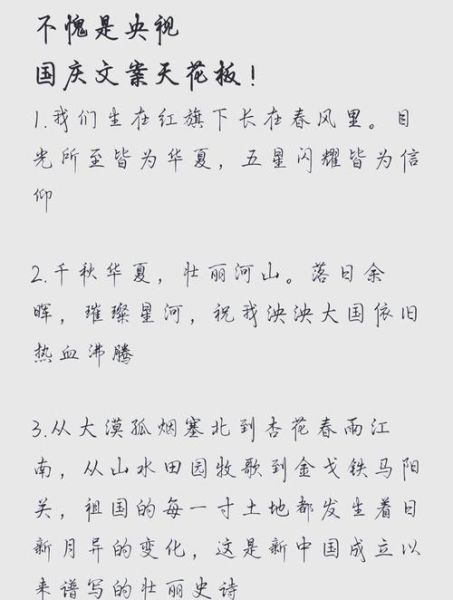 不愧是央视
国庆文案天花板！
1.我们生在红旗下长在春风里。目
光所至皆为华夏，五星闪耀皆为信
仰
2.千秋华夏，壮丽河山。落日余
晖，璀璨星河，祝我泱泱大国依旧
热血沸腾
3.从大漠孤烟塞北到杏花春雨江
南，从山水田园牧歌到金戈铁马阳
关，祖国的每一寸土地都发生着日
新月异的变化，这是新中国成立以
来谱写的壮丽史诗